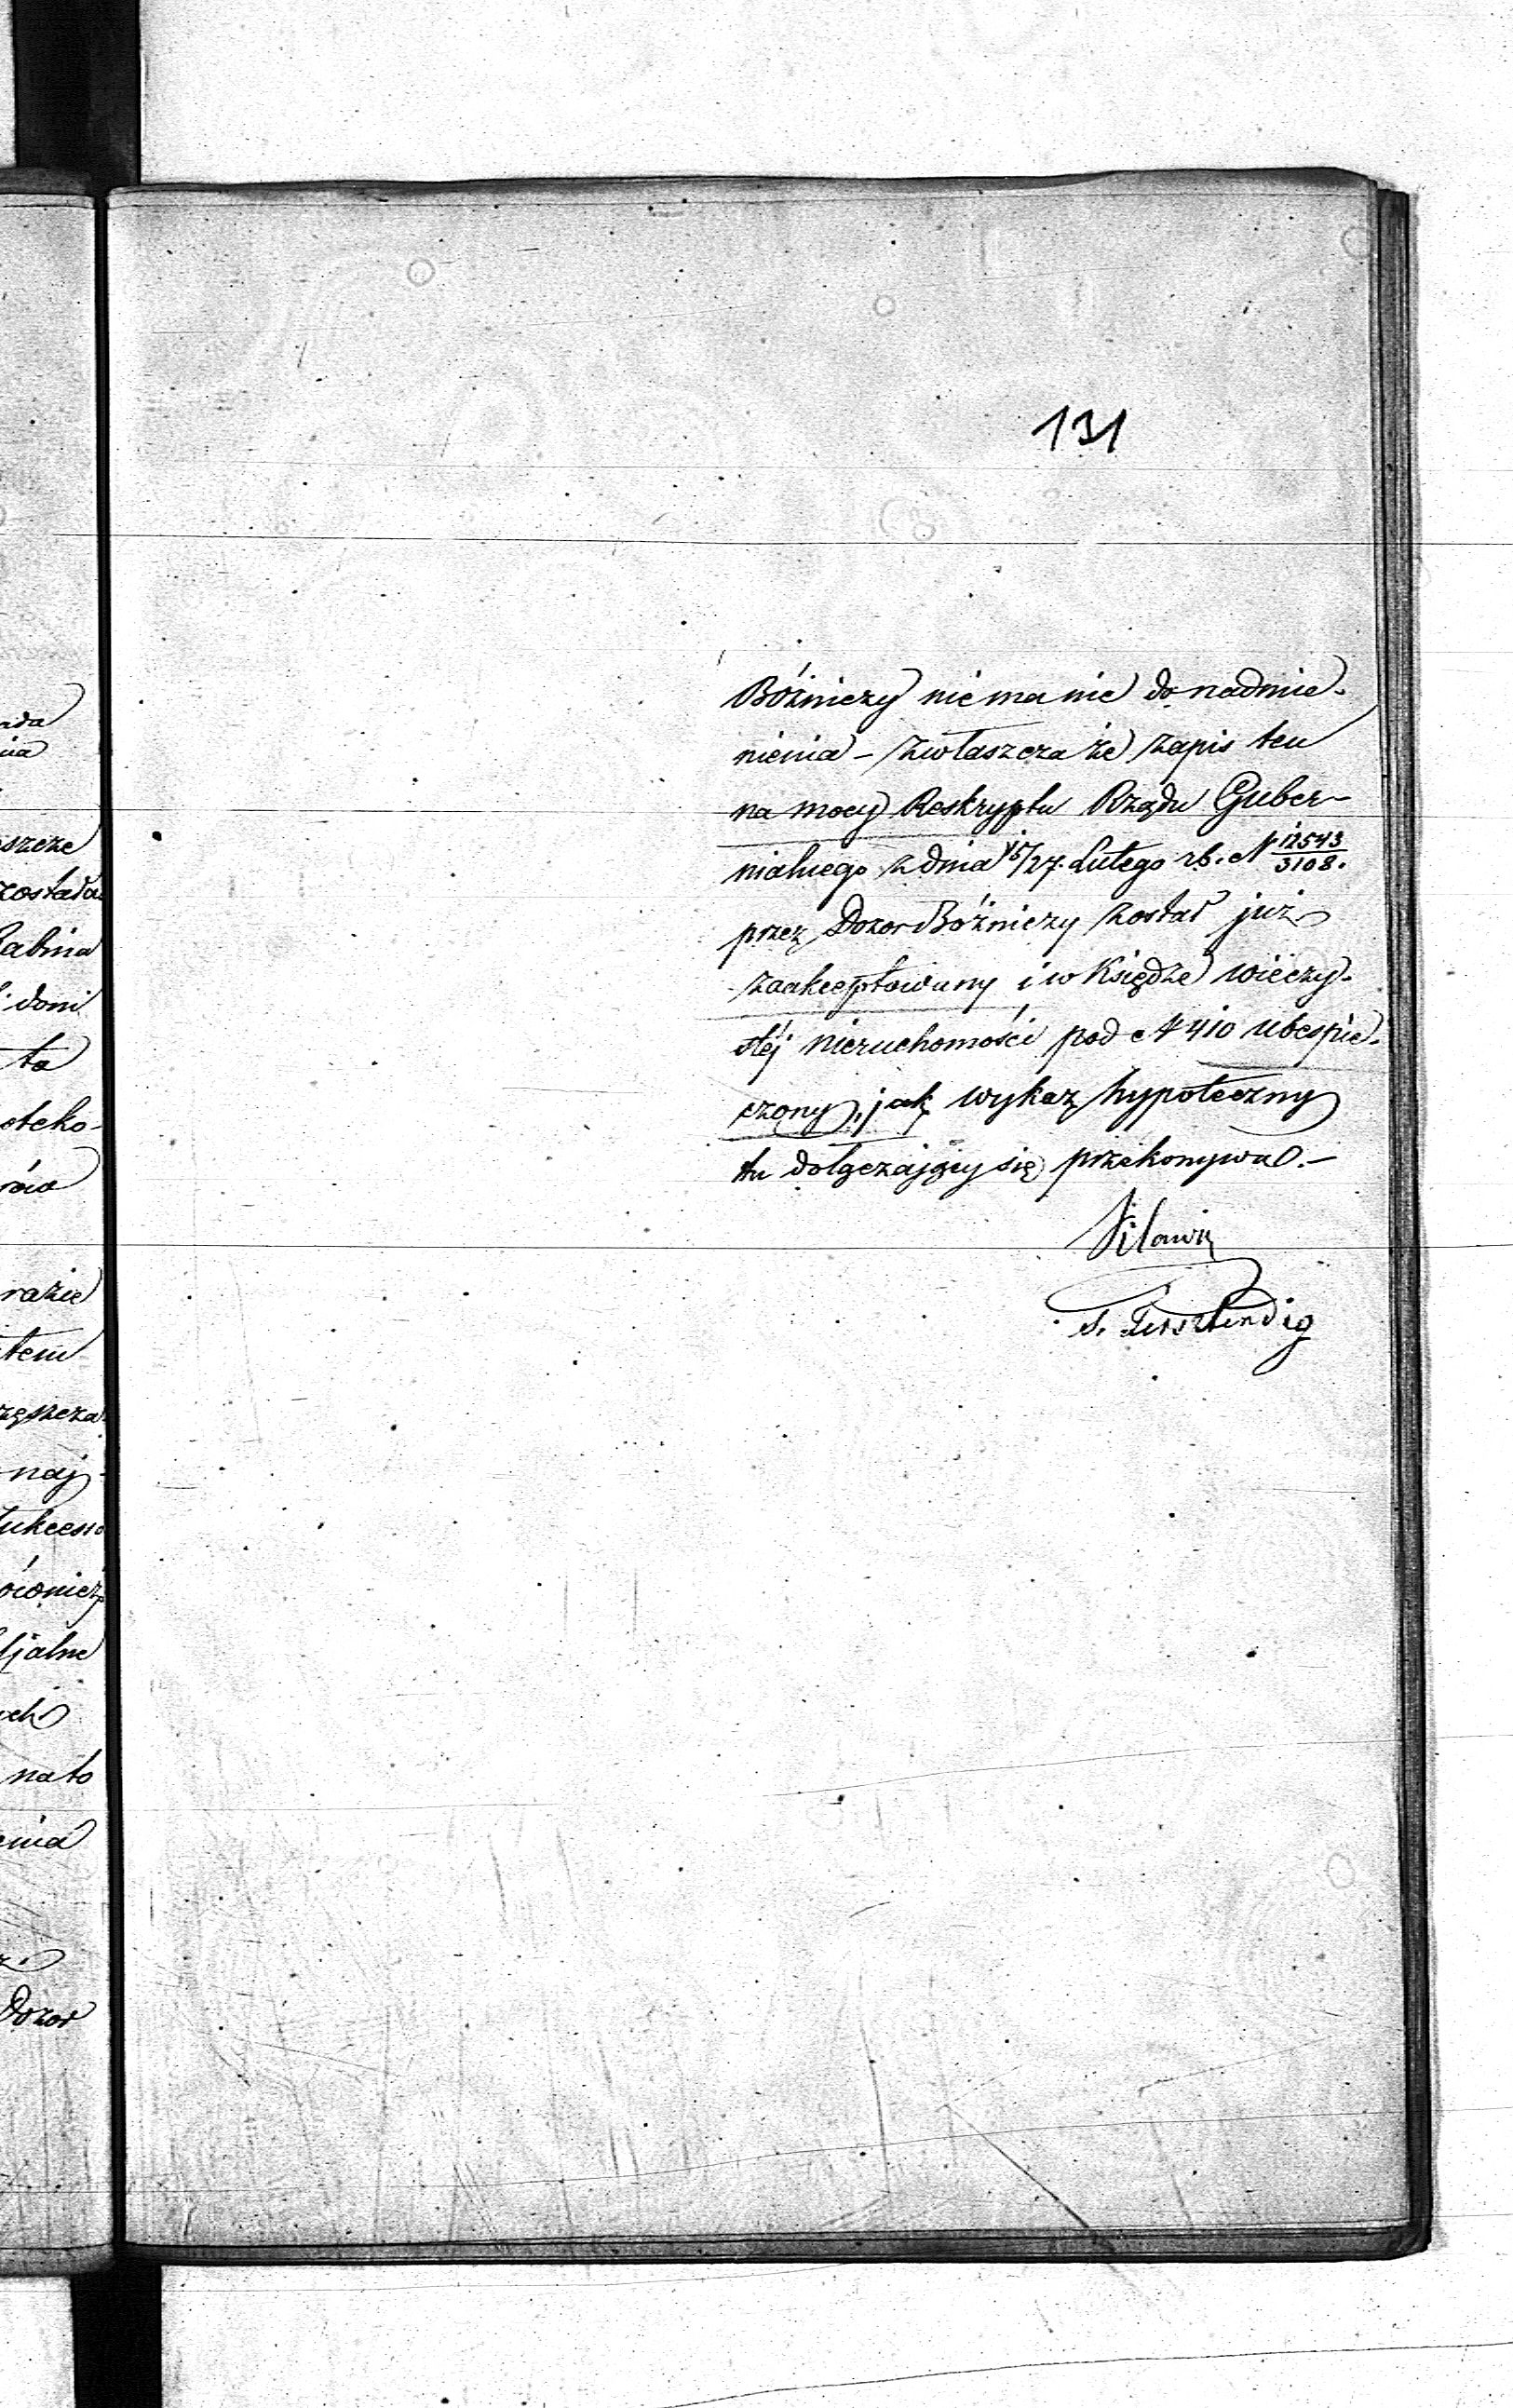 131
Bóżniczy nie ma nic do nadmie-
nienia – zwłaszcza że zapis ten
na mocy Reskryptu Rządu Guber-
nialnego z dnia 15/27. Lutego r.b. N 12543/3108.
przez Dozor Bóżniczy został już
zaakceptowany i w Księdze wieczy-
stéj nieruchomości pod N 410 ubespie-
czony, jak wykaz hypoteczny
tu dołączający się przekonywa. –
S.
ada
nia
szcze
została
Rabina
doni
ta
razie
tem
naj-
ównież
na to
Dozor